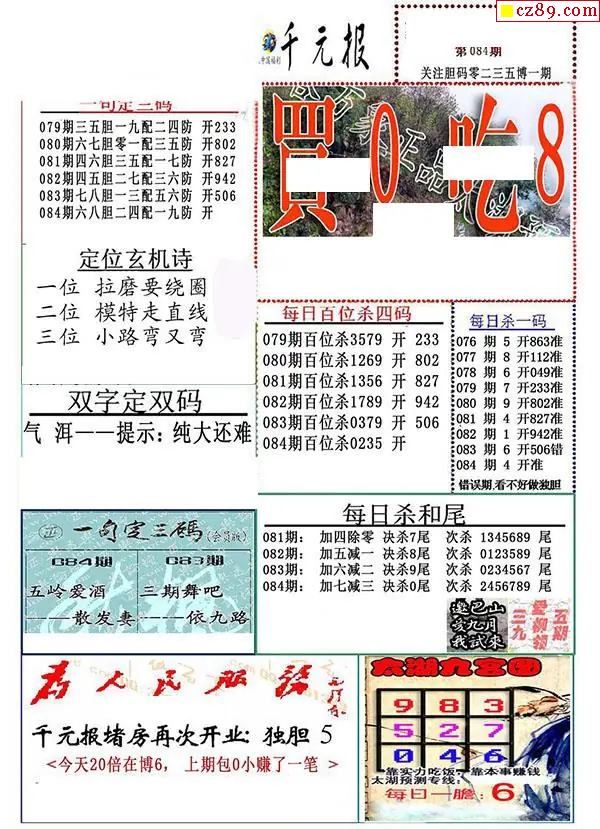 cz89.com
千元报
中国福利
第084期
关注胆码零二三五博一期
一句定三码
079期三五胆一九配二四防 开233
080期六七胆零一配三五防 开802
081期四六胆三五配一七防 开827
082期四五胆二七配三六防 开942
083期七八胆一三配五六防 开506
084期六八胆二四配一九防 开
買0吃8
定位玄机诗
一位 拉磨要绕圈
二位 模特走直线
三位 小路弯又弯
每日百位杀四码
079期百位杀3579 开 233
080期百位杀1269 开 802
081期百位杀1356 开 827
082期百位杀1789 开 942
083期百位杀0379 开 506
084期百位杀0235 开
每日杀一码
076 期 5 开863准
077 期 8 开112准
078 期 6 开049准
079 期 7 开233准
080 期 9 开802准
081 期 4 开827准
082 期 1 开942准
083 期 6 开506错
084 期 4 开准
错误期,看不好做独胆
双字定双码
气 洱——提示:纯大还难
一句定三碼(会员版)
084期 083期
五岭爱酒 三期舞吧
——散发妻 ——依九路
每日杀和尾
081期: 加四除零 决杀7尾 次杀 1345689 尾
082期: 加五减一 决杀8尾 次杀 0123589 尾
083期: 加六减二 决杀9尾 次杀 0234567 尾
084期: 加七减三 决杀0尾 次杀 2456789 尾
遂巴山
亥九月
我武来
五期
爱柳领
三九
为人民服务
千元报堵房再次开业: 独胆 5
<今天20倍在博6, 上期包0小赚了一笔 >
太湖九宫图
9 8 3
5 2 7
0 4 6
靠实力吃饭,靠本事赚钱
太湖预测专线:
每日一膽:6